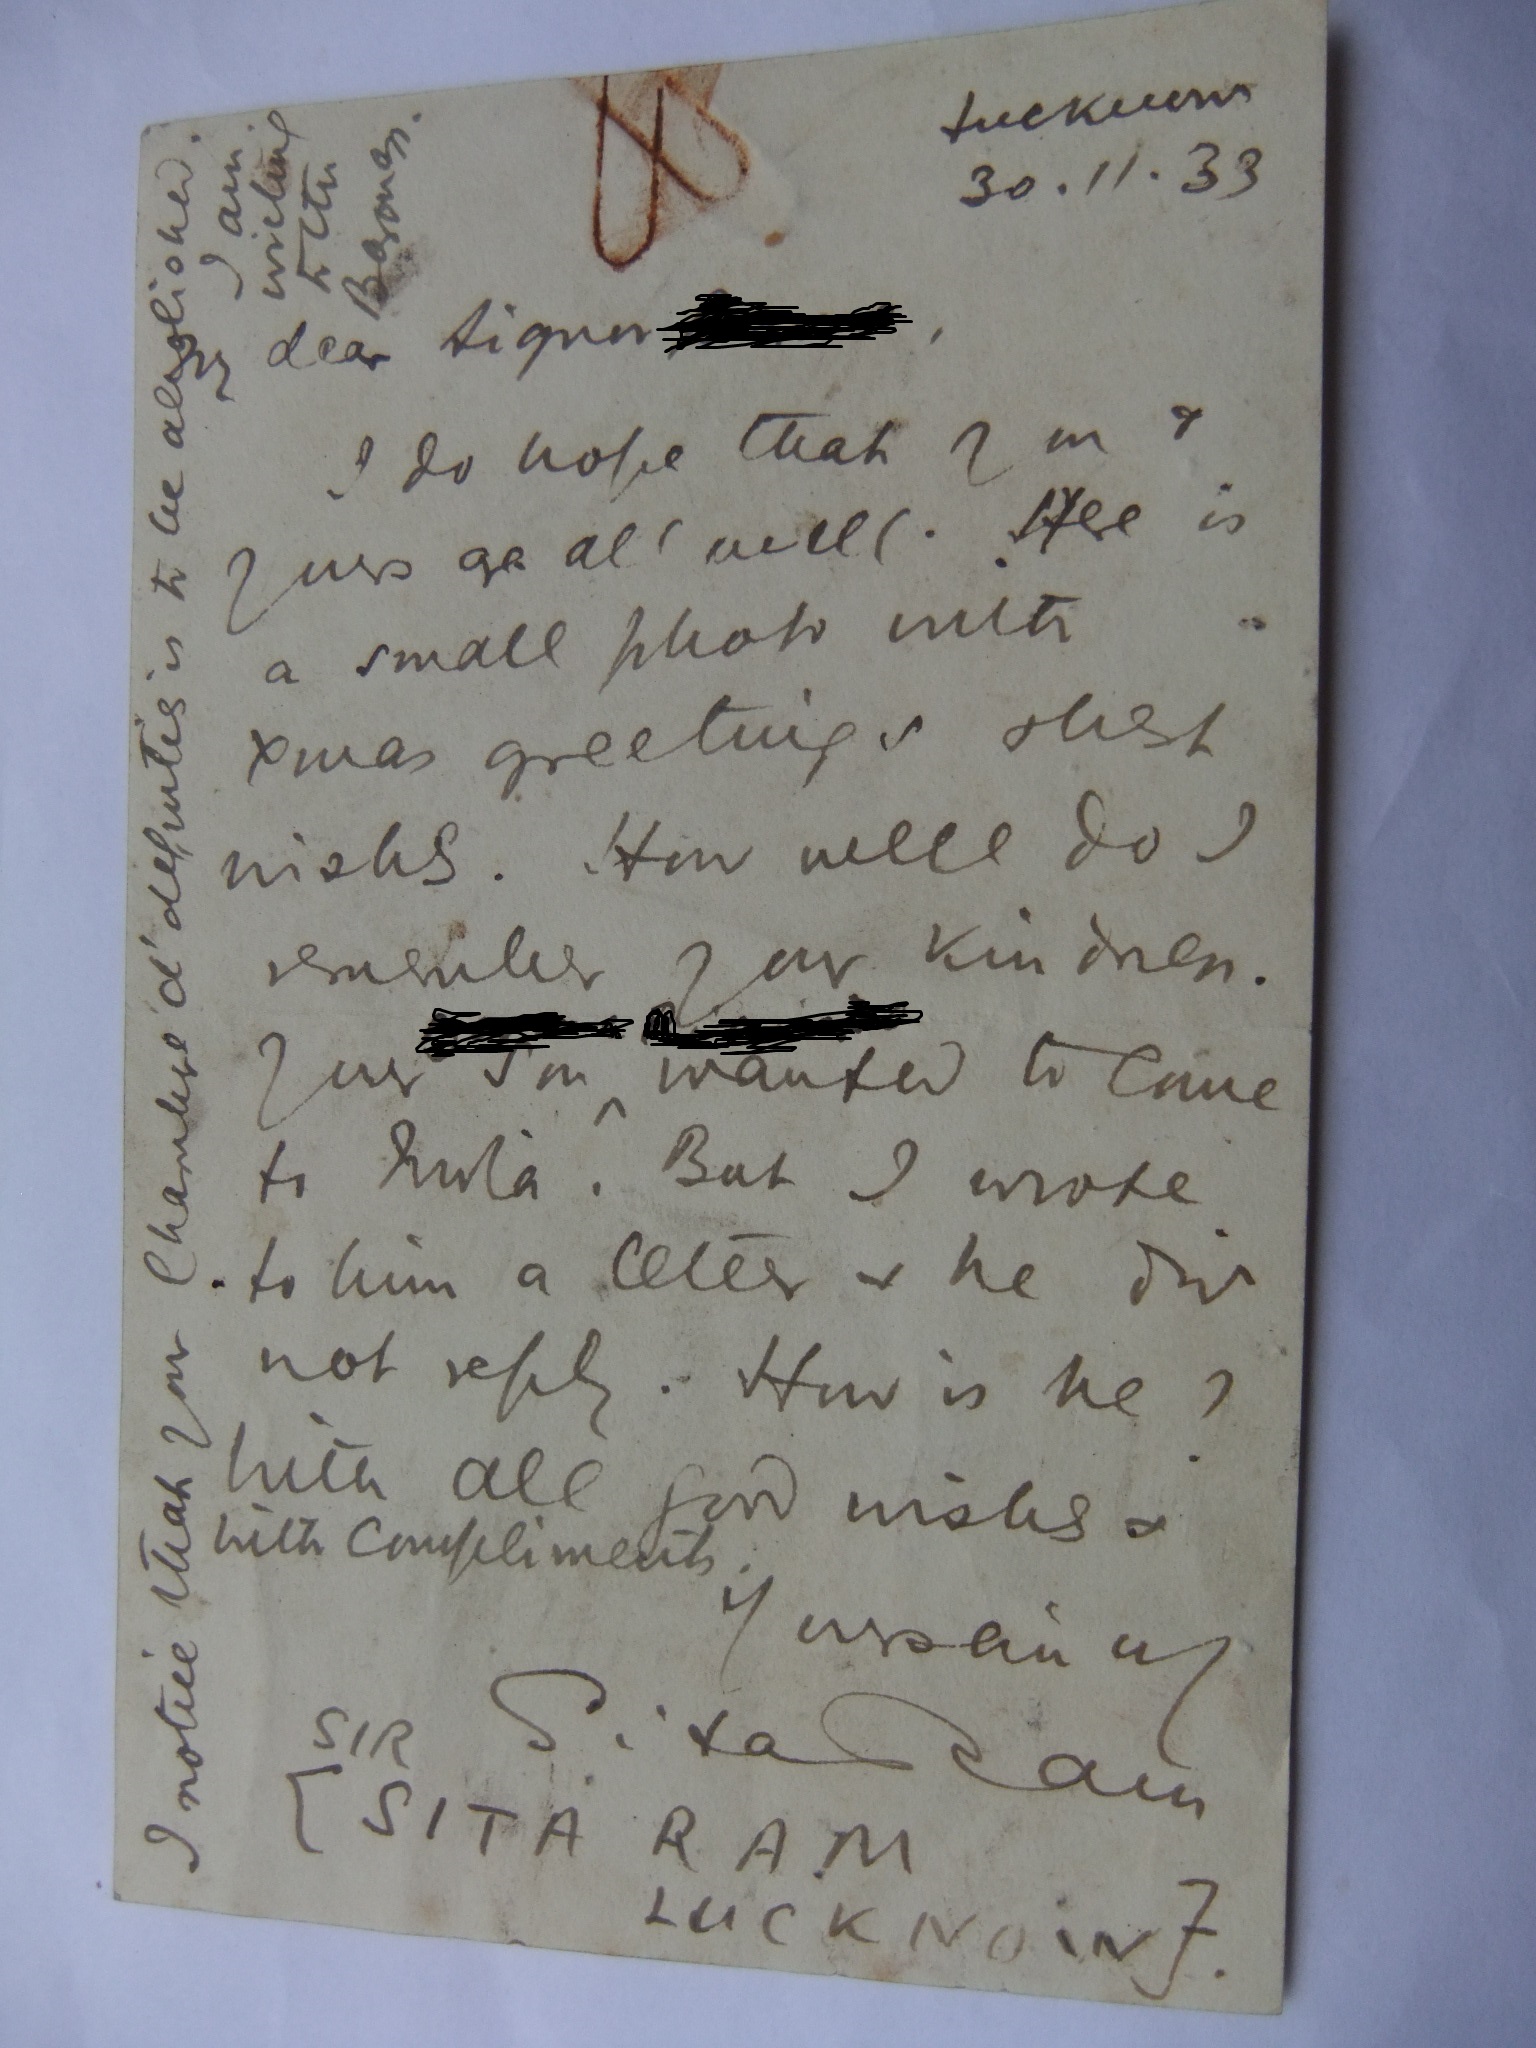 Lucknow
30.11.33
My dear Signor ,
I do hope that you &
yours are all well. Here is
a small photo with
Xmas greetings & best
wishes. How well do I
remember your kindness.
Your son wanted to come
to India. But I wrote
to him a letter & he did
not reply. How is he?
With all good wishes &
with compliments.
Yours sincerely
Sita Ram
SIR
SITA RAM
LUCKNOW
I notice that your Chambre d'deputés is to be abolished.
I am
writing
to the
Baroness.